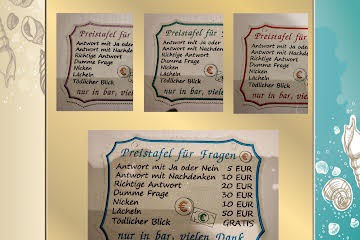 Preistafel für
Antwort mit Ja oder
Antwort mit Nachden
Richtige Antwort
Dumme Frage
Nicken
Lächeln
Tödlicher Blick
nur in bar, viel
Preistafel für
Antwort mit Ja od
Antwort mit Nachd
Richtige Antwort
Dumme Frage
Nicken
Lächeln
Tödlicher Blick
nur in bar, vie
Preistafel für
Antwort mit Ja oder
Antwort mit Nachden
Richtige Antwort
Dumme Frage
Nicken
Lächeln
Tödlicher Blick
nur in bar, viel
Preistafel für Fragen
Antwort mit Ja oder Nein 5 EUR
Antwort mit Nachdenken 10 EUR
Richtige Antwort 20 EUR
Dumme Frage 30 EUR
Nicken 10 EUR
Lächeln 50 EUR
Tödlicher Blick GRATIS
nur in bar, vielen Dank